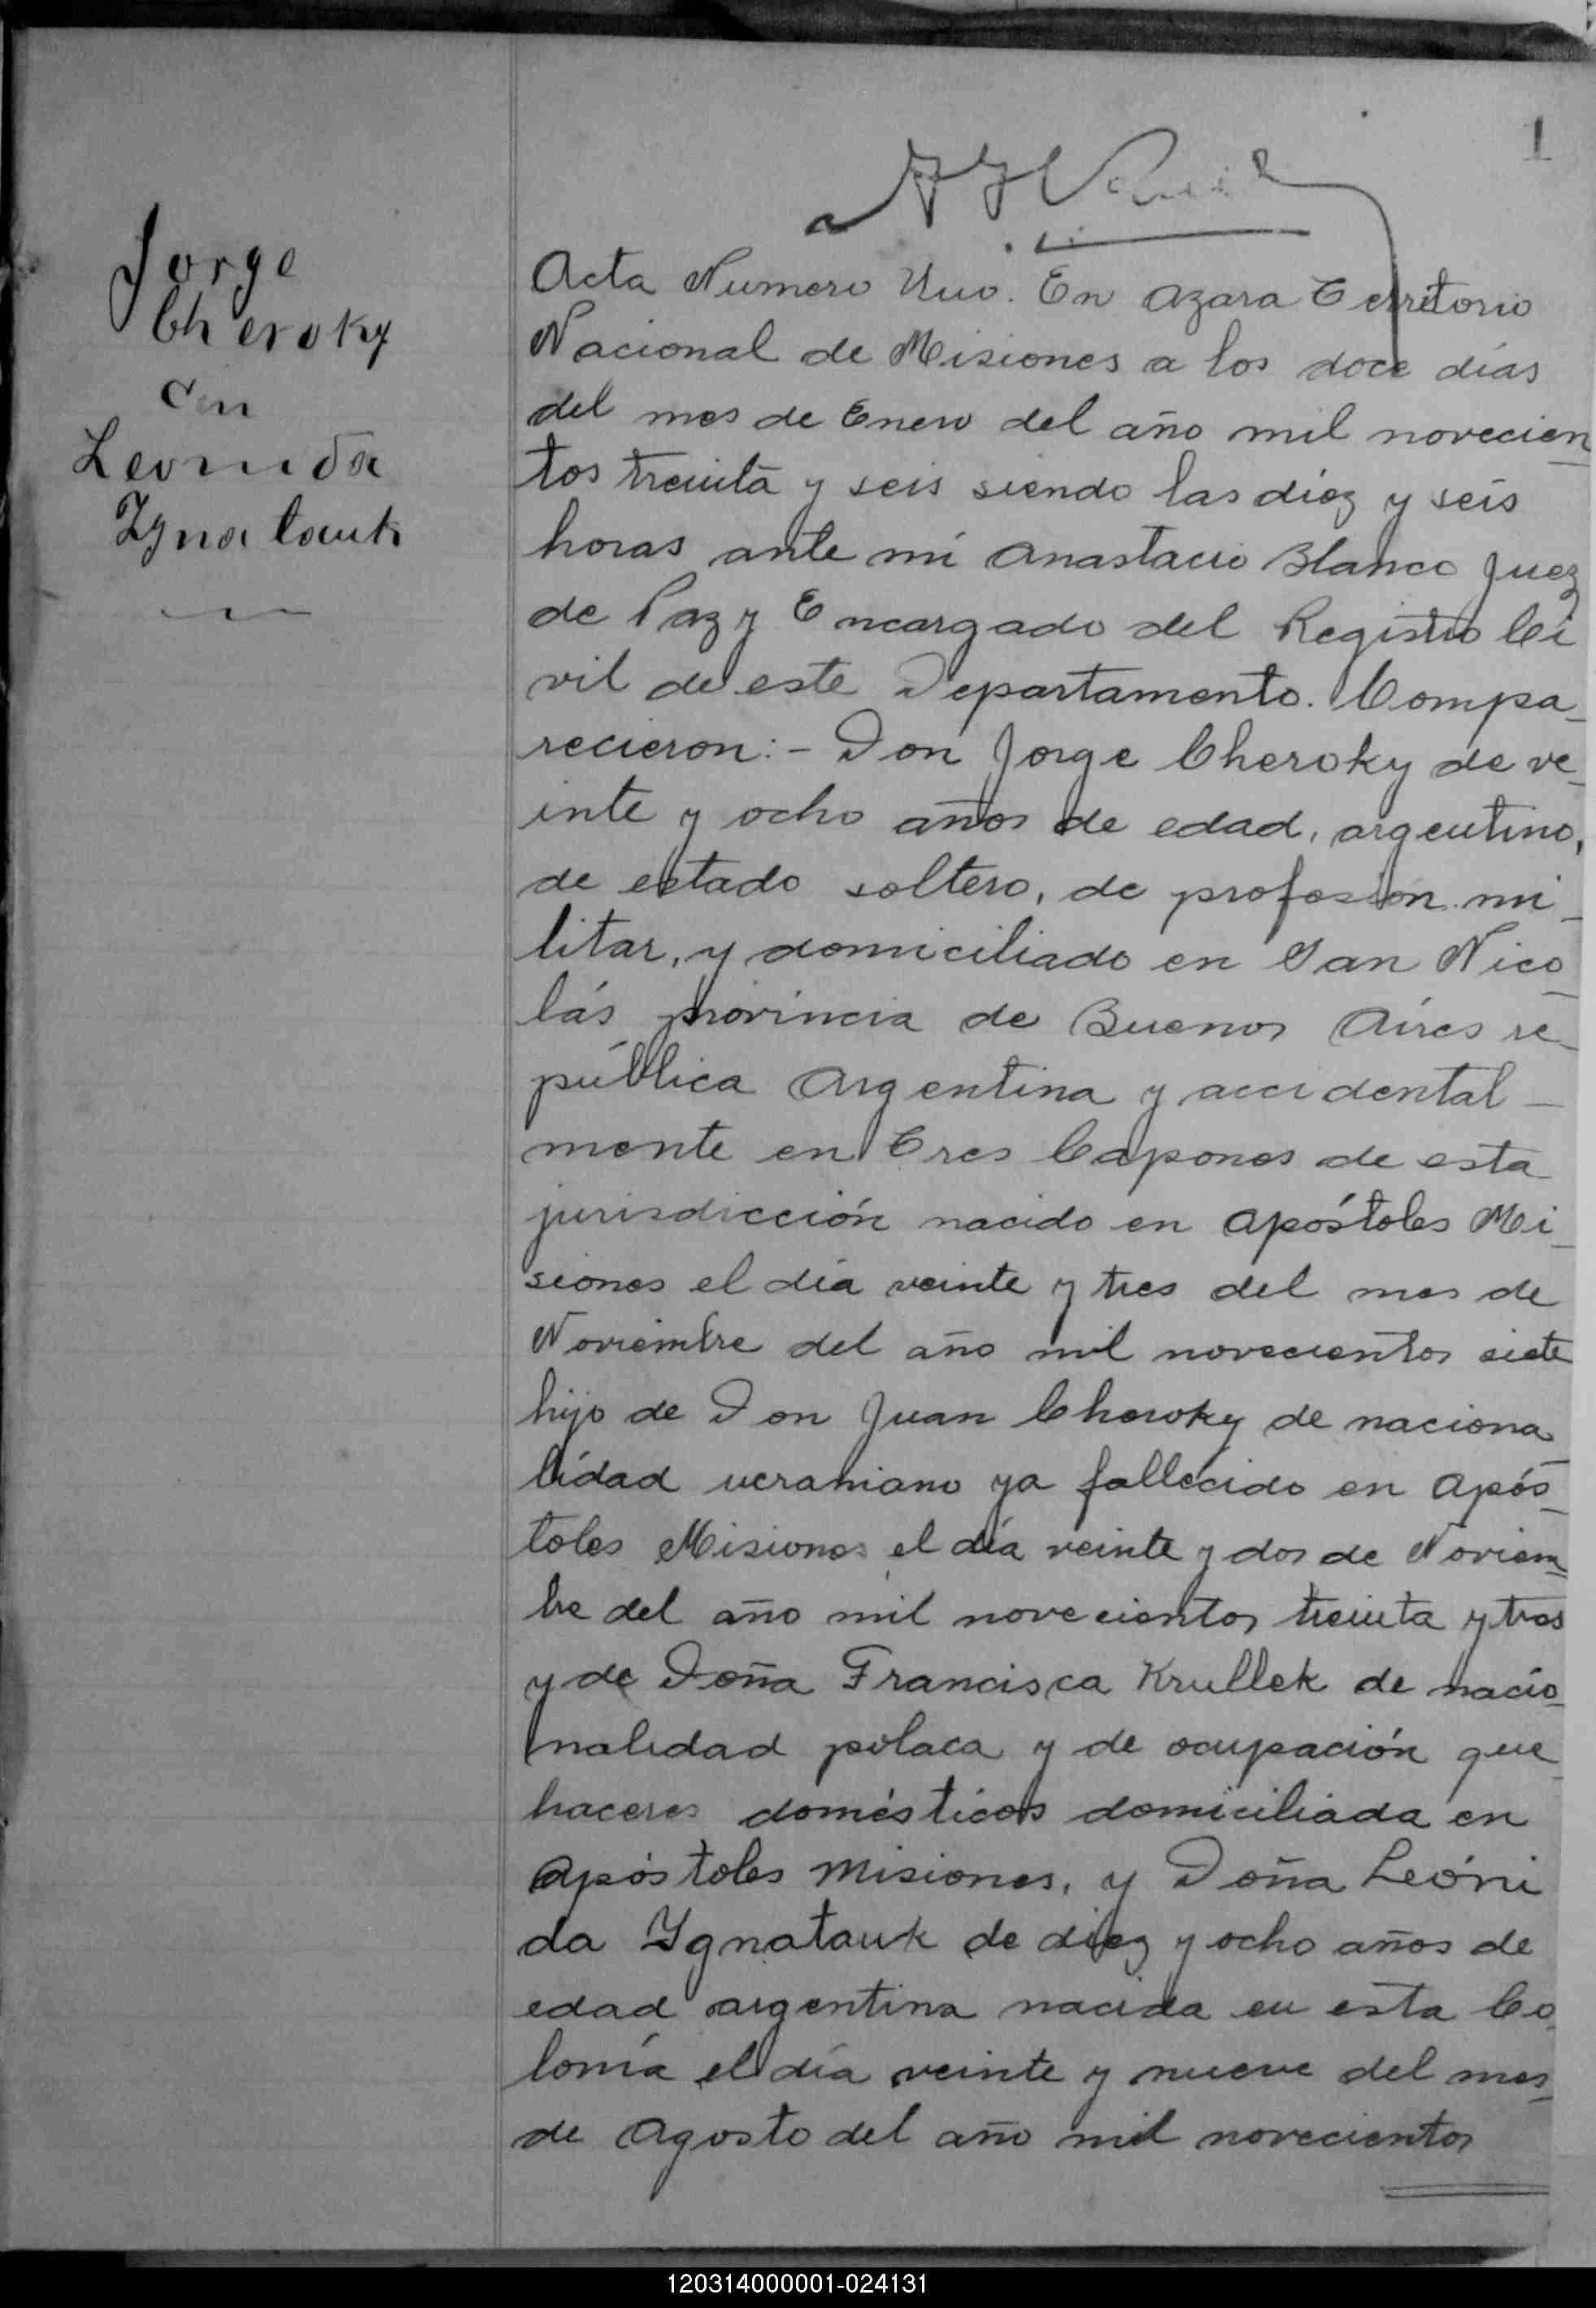 1
Jorge
Cheroky
con
Leonida
Ygnatauk
Acta Numero Uno. En Azara Territorio
Nacional de Misiones a los doce días
del mes de Enero del año mil novecien
tos treinta y seis siendo las diez y seis
horas ante mi Anastacio Blanco Juez
de Paz y Encargado del Registro Ci
vil de este Departamento. Compa-
recieron:- Don Jorge Cheroky de ve-
inte y ocho años de edad, argentino,
de estado soltero, de profesión mi-
litar, y domiciliado en San Nico-
lás provincia de Buenos Aires re-
pública Argentina y accidental-
mente en Tres Capones de esta
jurisdicción nacido en Apóstoles Mi-
siones el día veinte y tres del mes de
Noviembre del año mil novecientos siete
hijo de Don Juan Cheroky de naciona-
lidad ucraniano ya fallecido en Após-
toles Misiones el día veinte y dos de Noviem-
bre del año mil novecientos treinta y tres
y de Doña Francisca Krullek de nacio-
nalidad polaca y de ocupación que-
haceres domésticos domiciliada en
Apóstoles Misiones, y Doña Leóni
da Ygnatauk de diez y ocho años de
edad argentina nacida en esta Co-
lonia el día veinte y nueve del mes-
de Agosto del año mil novecientos
120314000001-024131